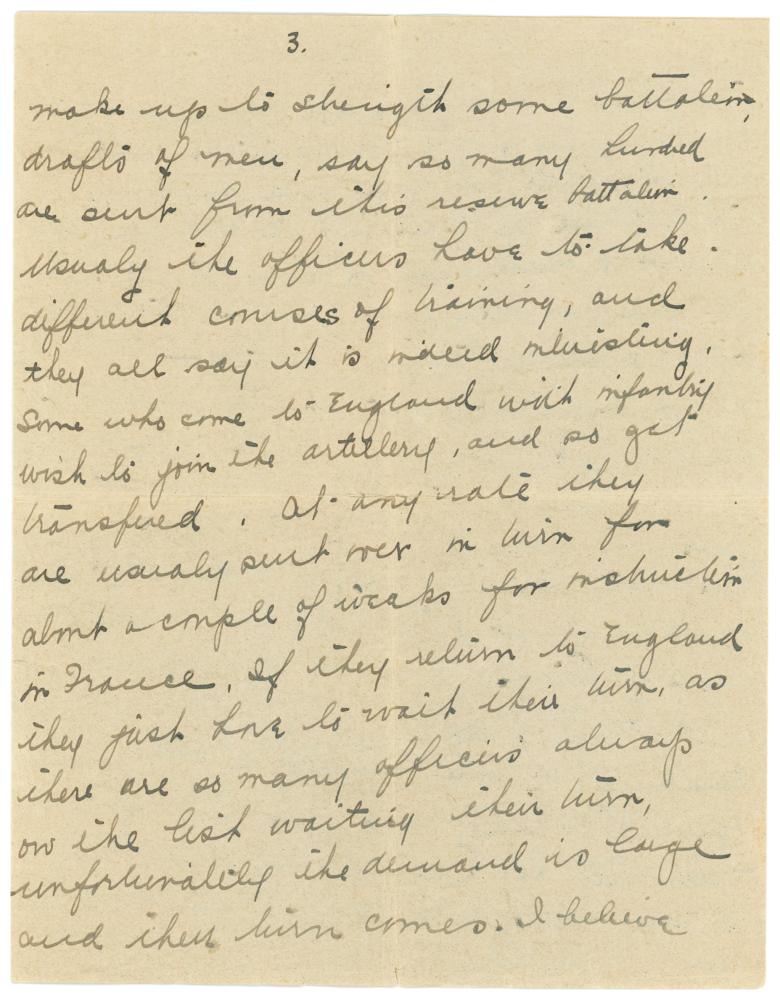 3.
make up to strength some battalion,
drafts of men, say so many hundred
are sent from this reserve battalion.
usualy the officers have to take.
different courses of training, and
they all say it is indeed interesting.
Some who come to England with infantry
wish to join the artillery, and so get
transfered. At any rate they
are usualy sent over in turn for
about a couple of weeks for instruction
in France. If they return to England
they just have to wait their turn, as
there are so many officers always
on the list waiting their turn,
unfortunately the demand is large
and their turn comes. I believe